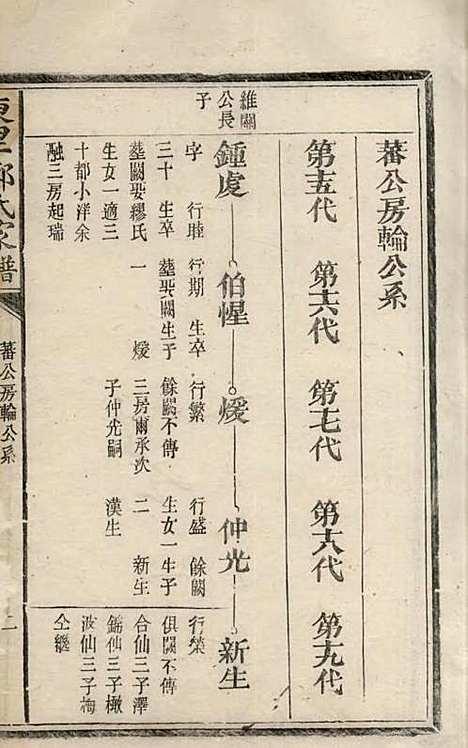 蕃公房輪公系
第十五代 第十六代 第十七代 第十八代 第十九代
維關
公長
子
鍾虔 伯惺 煖 仲光 新生
字 行睦
三十 生卒
塟闕娶繆氏
生女一適三
十都小洋余
融三房起瑞
行期 生卒
塟娶闕生子
一 煖
行繁
餘闕不傳
三房爾承次
子仲光嗣
行盛 餘闕
生女一生子
二 新生
漢生
行榮
俱闕不傳
合仙三子澤
仙三子檄
波仙三子梅
仝繼
鄭氏家譜
蕃公房輪公系
二